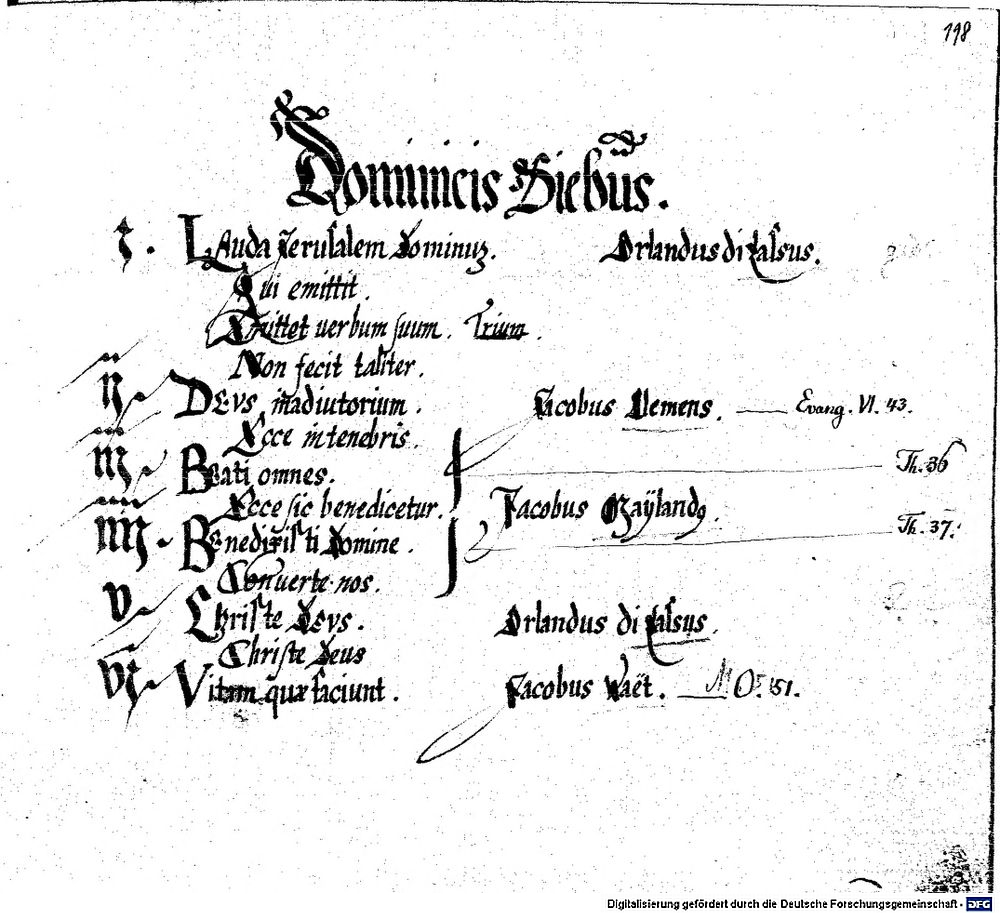 198
Dominicis Diebus.
I. Lauda Jerusalem Dominuz. Orlandus di Lassus.
Qui emittit.
Emittet uerbum suum. Trium.
Non fecit taliter.
II Devs in adiutorium. Jacobus Clemens. Evang. VI. 43.
Ecce in tenebris.
III Beati omnes. Th. 36
Ecce sic benedicetur. Jacobus Maÿland9.
IIII. Benedixisti Domine. Th. 37.
Conuerte nos.
V Christe Devs. Orlandus di Lassus.
Christe Deus
VI. Vitam quæ faciunt. Jacobus Vaët. M O. 151.
Digitalisierung gefördert durch die Deutsche Forschungsgemeinschaft - DFG